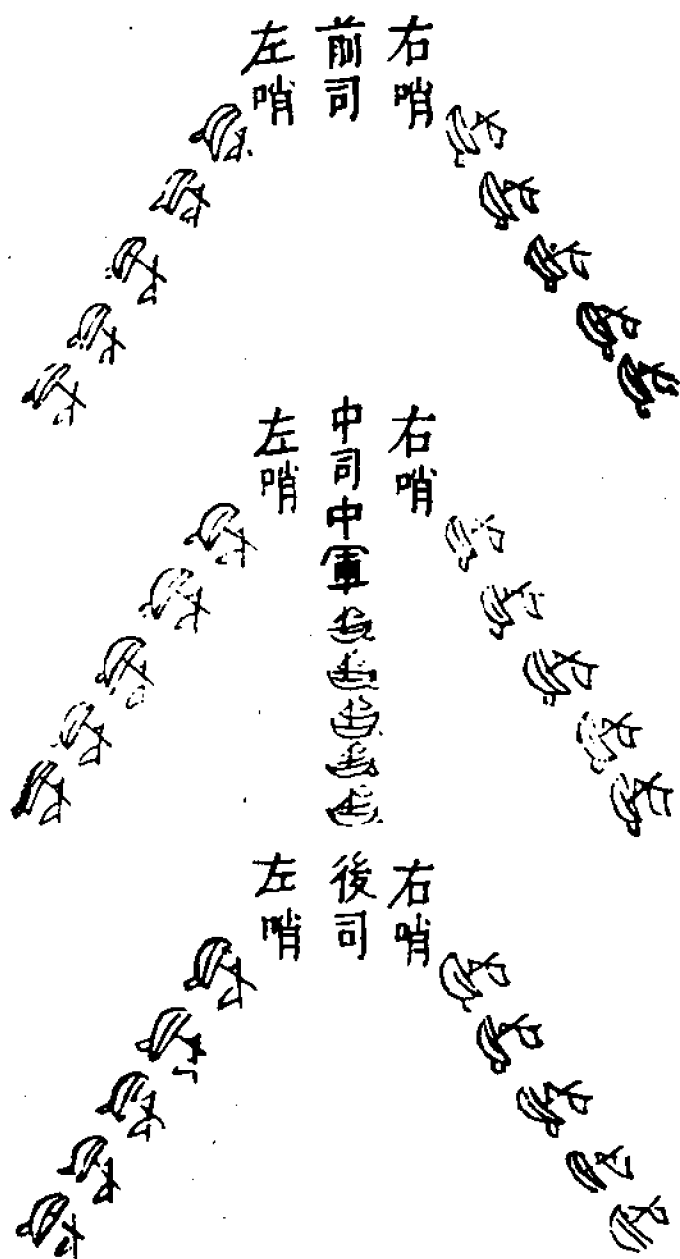 右哨
前司
左哨
右哨
中司中軍
左哨
右哨
後司
左哨